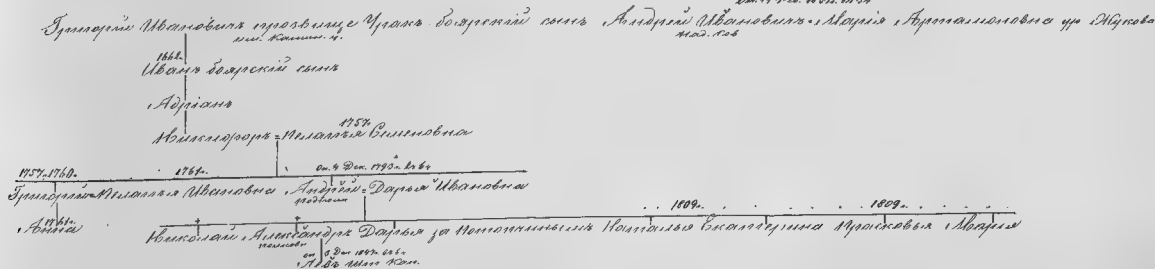 Григорій Ивановичъ прозвище Угакъ боярскій сынъ Андрей Ивановичъ=Марія Артамоновна ур Жукова
над. сов
1661г.
Иванъ боярскій сынъ
Адріанъ
1757г.
Никифоръ=Пелагѣя Семеновна
1757г. 1760г. 1761г. ок. 4 Дек. 1793г.
Григорій=Пелагѣя Ивановна Андрей=Дарья Ивановна
1809г. 1809г.
1761г.
Анна Николай Александръ Дарья за Потопчинымъ Наталья Екатерина Прасковья Марія
полковн
Левъ шт Кап.